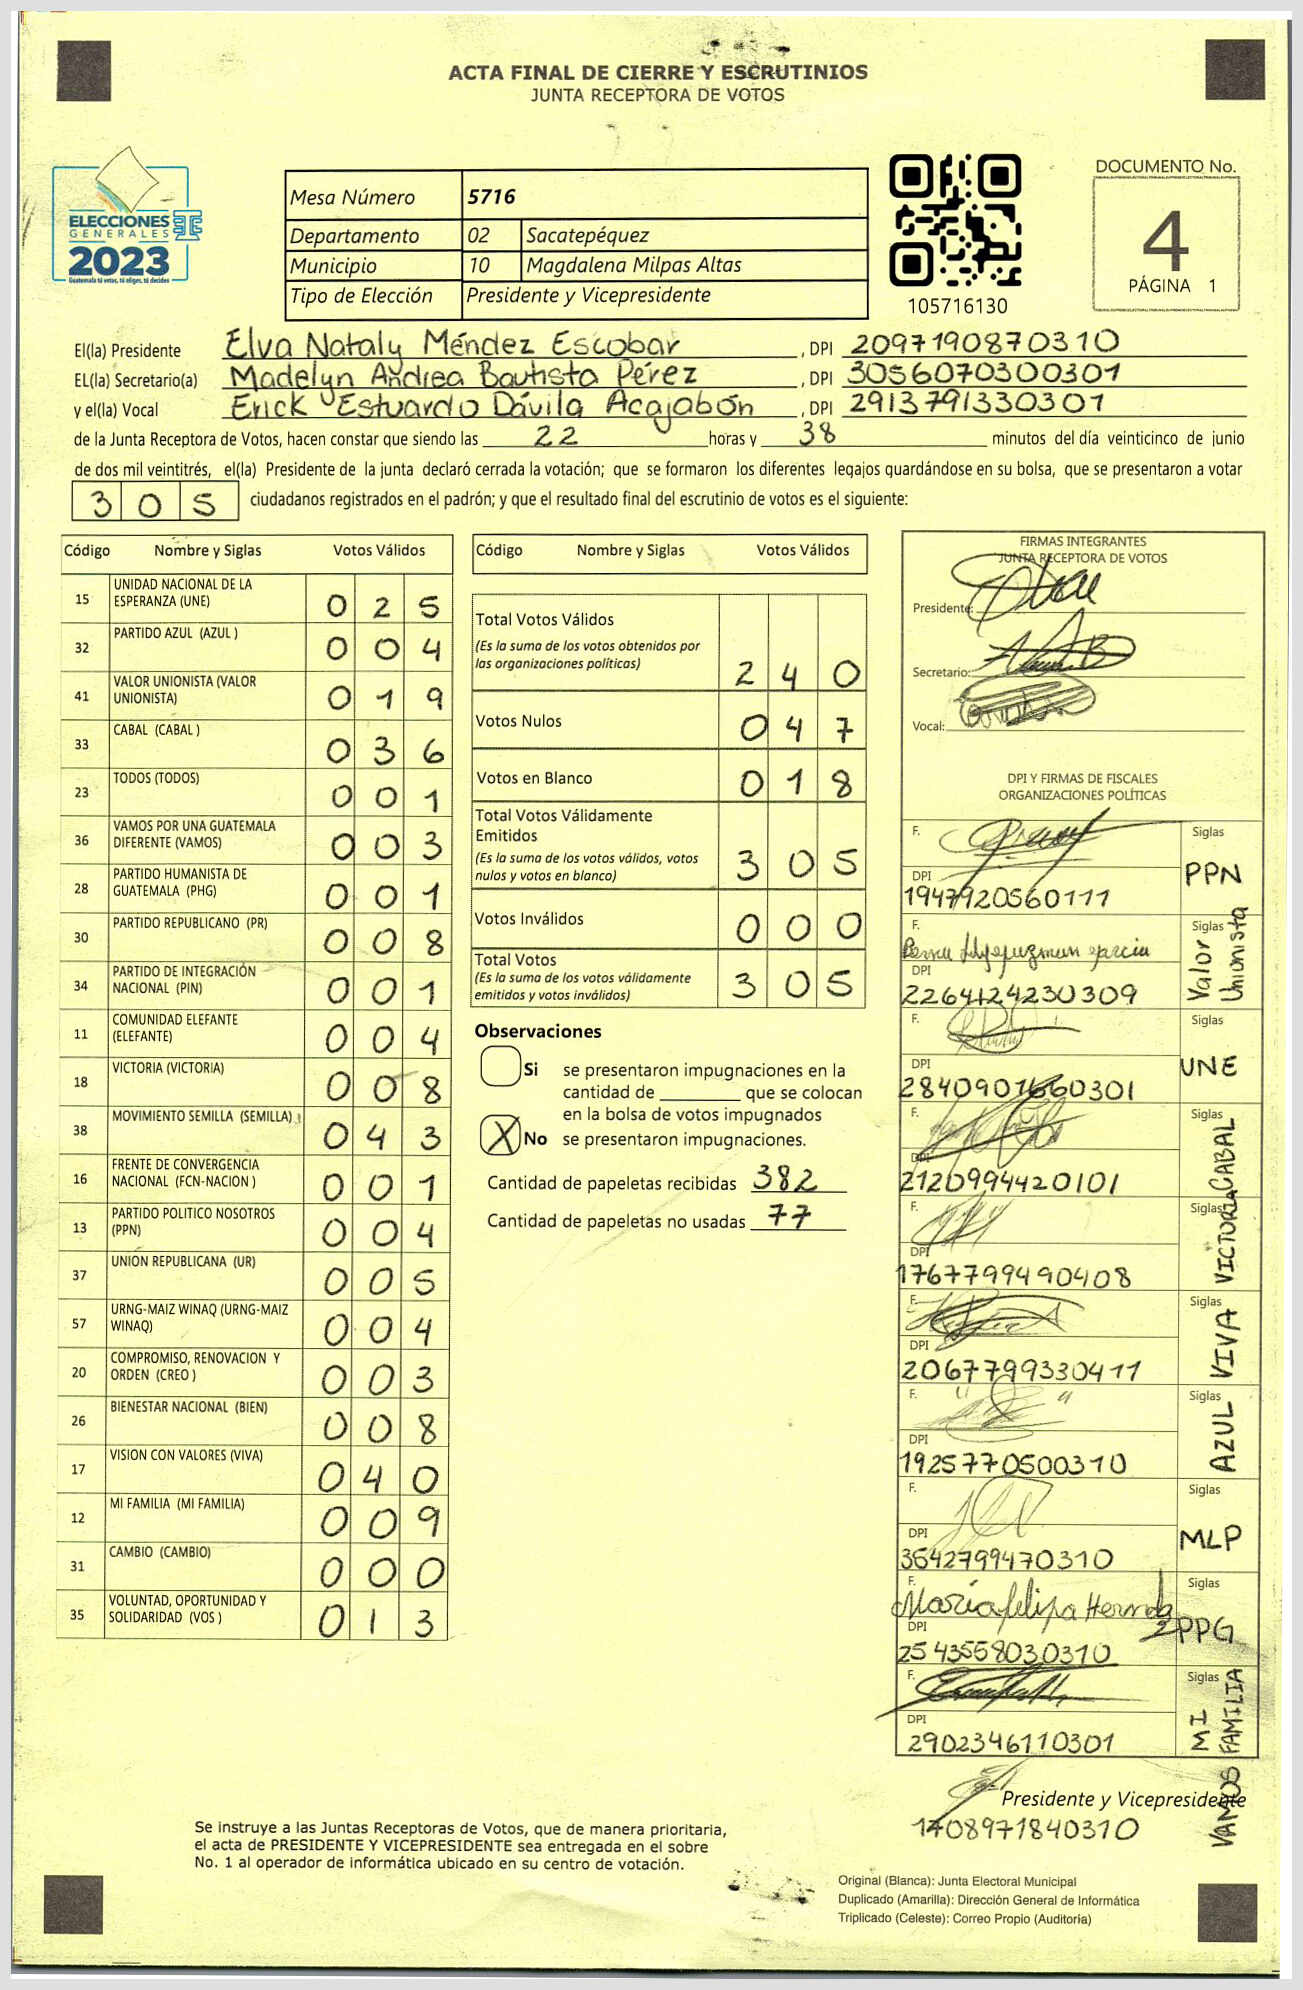 ACTA FINAL DE CIERRE Y ESCRUTINIOS
JUNTA RECEPTORA DE VOTOS
ELECCIONES
GENERALES
2023
Guatemala tú votas, tú eliges, tú decides
Mesa Número 5716
Departamento 02 Sacatepéquez
Municipio 10 Magdalena Milpas Altas
Tipo de Elección Presidente y Vicepresidente
105716130
DOCUMENTO No.
4
PÁGINA 1
El(la) Presidente Elva Nataly Méndez Escobar , DPI 2097190870310
EL(la) Secretario(a) Madelyn Andrea Bautista Pérez , DPI 3056070300301
y el(la) Vocal Erick Estuardo Dávila Acajabón , DPI 2913791330301
de la Junta Receptora de Votos, hacen constar que siendo las 22 horas y 38 minutos del día veinticinco de junio
de dos mil veintitrés, el(la) Presidente de la junta declaró cerrada la votación; que se formaron los diferentes legajos guardándose en su bolsa, que se presentaron a votar
305 ciudadanos registrados en el padrón; y que el resultado final del escrutinio de votos es el siguiente:
Código Nombre y Siglas Votos Válidos
15 UNIDAD NACIONAL DE LA ESPERANZA (UNE) 025
32 PARTIDO AZUL (AZUL ) 004
41 VALOR UNIONISTA (VALOR UNIONISTA) 019
33 CABAL (CABAL ) 036
23 TODOS (TODOS) 001
36 VAMOS POR UNA GUATEMALA DIFERENTE (VAMOS) 003
28 PARTIDO HUMANISTA DE GUATEMALA (PHG) 001
30 PARTIDO REPUBLICANO (PR) 008
34 PARTIDO DE INTEGRACIÓN NACIONAL (PIN) 001
11 COMUNIDAD ELEFANTE (ELEFANTE) 004
18 VICTORIA (VICTORIA) 008
38 MOVIMIENTO SEMILLA (SEMILLA) 043
16 FRENTE DE CONVERGENCIA NACIONAL (FCN-NACION ) 001
13 PARTIDO POLITICO NOSOTROS (PPN) 004
37 UNION REPUBLICANA (UR) 005
57 URNG-MAIZ WINAQ (URNG-MAIZ WINAQ) 004
20 COMPROMISO, RENOVACION Y ORDEN (CREO ) 003
26 BIENESTAR NACIONAL (BIEN) 008
17 VISION CON VALORES (VIVA) 040
12 MI FAMILIA (MI FAMILIA) 009
31 CAMBIO (CAMBIO) 000
35 VOLUNTAD, OPORTUNIDAD Y SOLIDARIDAD (VOS ) 013
Código Nombre y Siglas Votos Válidos
Total Votos Válidos
(Es la suma de los votos obtenidos por
las organizaciones políticas) 240
Votos Nulos 047
Votos en Blanco 018
Total Votos Válidamente
Emitidos
(Es la suma de los votos válidos, votos
nulos y votos en blanco) 305
Votos Inválidos 000
Total Votos
(Es la suma de los votos válidamente
emitidos y votos inválidos) 305
Observaciones
Si se presentaron impugnaciones en la
cantidad de ________ que se colocan
en la bolsa de votos impugnados
X No se presentaron impugnaciones.
Cantidad de papeletas recibidas 382
Cantidad de papeletas no usadas 77
FIRMAS INTEGRANTES
JUNTA RECEPTORA DE VOTOS
Presidente:
Secretario:
Vocal:
DPI Y FIRMAS DE FISCALES
ORGANIZACIONES POLÍTICAS
F. Siglas
DPI PPN
1947920560111
F. Siglas
DPI Valor Unionista
2264124230309
F. Siglas
DPI UNE
2840901660301
F. Siglas
DPI CABAL
2120994420101
F. Siglas
DPI VICTORIA
1767799490408
F. Siglas
DPI VIVA
2067799330411
F. Siglas
DPI AZUL
1925770500310
F. Siglas
DPI MLP
3542799470310
F. María felipa Herndz Siglas
DPI PPG
2543558030310
F. Siglas
DPI MI FAMILIA
2902346110301
VAMOS
Presidente y Vicepresidente
1708971840310
Se instruye a las Juntas Receptoras de Votos, que de manera prioritaria,
el acta de PRESIDENTE Y VICEPRESIDENTE sea entregada en el sobre
No. 1 al operador de informática ubicado en su centro de votación.
Original (Blanca): Junta Electoral Municipal
Duplicado (Amarilla): Dirección General de Informática
Triplicado (Celeste): Correo Propio (Auditoría)